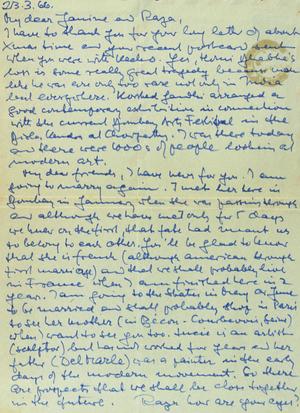 23.3.66.
My dear Janine and Raza,
I have to thank you for your long letter of about
Xmas time and you recent postcard sent
when you were with Nechu. Yes, Homi Bhabha's
loss is some really great tragedy because men
like he was are only too rare not only in India
but everywhere. Korshed Gandhi arranged a
good contemporary exhibition in connection
with the current Bombay Arts Festival in the
Birla Kendra at Chowpatty. I was there today
and there were 1000s of people looking at
modern art.
My dear friends, I have news for you. I am
going to marry again. I met her here in
Bombay in January when she was passing through
and although we have met only for 7 days
we knew on the first, that fate had meant us
to belong to each other. You'll be glad to know
that she is french (although american through
first marriage) and that we shall probably live
in France when I am finished here in a
year. I am going to the States in May or June
to be married and shall probably stay in Paris
to see her mother (in Becon-Courbevoie, Seine)
when I want to see you. Lucie is an artist
(sculptor) and has worked for years and her
father (Delmarle) was a painter in the early
days of the modern movement. So there
are prospects that we shall be close together
in the future. Raza how are your eyes?